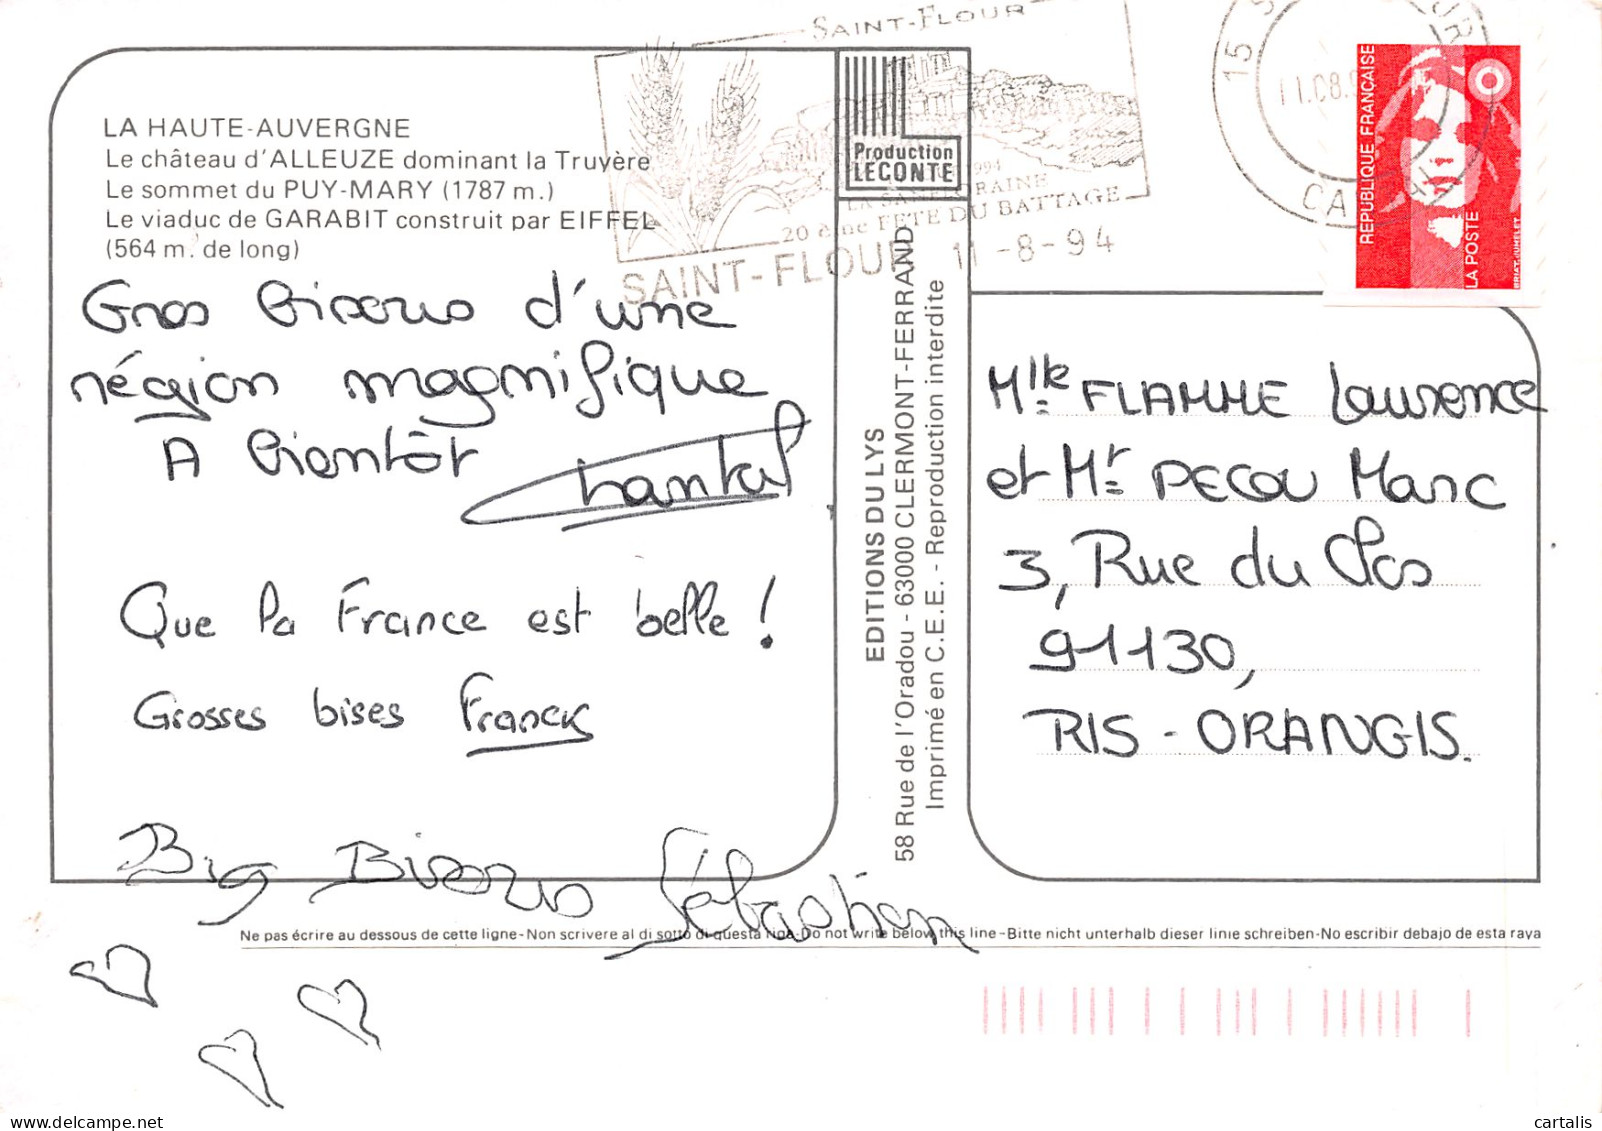 LA HAUTE-AUVERGNE
Le château d'ALLEUZE dominant la Truyère
Le sommet du PUY-MARY (1787 m.)
Le viaduc de GARABIT construit par EIFFEL
(564 m. de long)
Gros bisous d'une
région magnifique
A bientôt Chantal
Que la France est belle !
Grosses bises Franck
Big Bisous Sébastien
SAINT-FLOUR
1994
LA SANFLORAINE
20 ème FÊTE DU BATTAGE
SAINT-FLOUR 11-8-94
Production
LECONTE
EDITIONS DU LYS
58 Rue de l'Oradou - 63000 CLERMONT-FERRAND
Imprimé en C.E.E. - Reproduction interdite
15
11.08.
CA
REPUBLIQUE FRANÇAISE
LA POSTE
BRIAT. JUMELET
Mlle FLAMME Laurence
et Mr PECOU Marc
3, Rue du Clos
91130,
RIS-ORANGIS.
Ne pas écrire au dessous de cette ligne-Non scrivere al di sotto di questa riga-Do not write below this line-Bitte nicht unterhalb dieser linie schreiben-No escribir debajo de esta raya
cartalis
delcampe.net